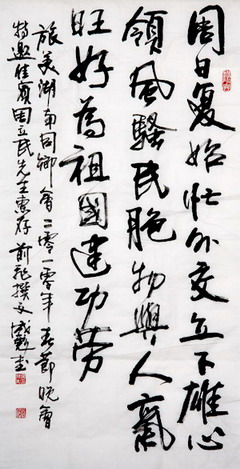 周日复始忙外交立下雄心
领风骚民胞物與人氣
旺好為祖國建功劳
旅美湖南同鄉會二零一零年春節晚會
特邀佳賓周立民先生惠存 前飛撰文